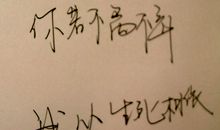 你若不离不弃
我以生死相依